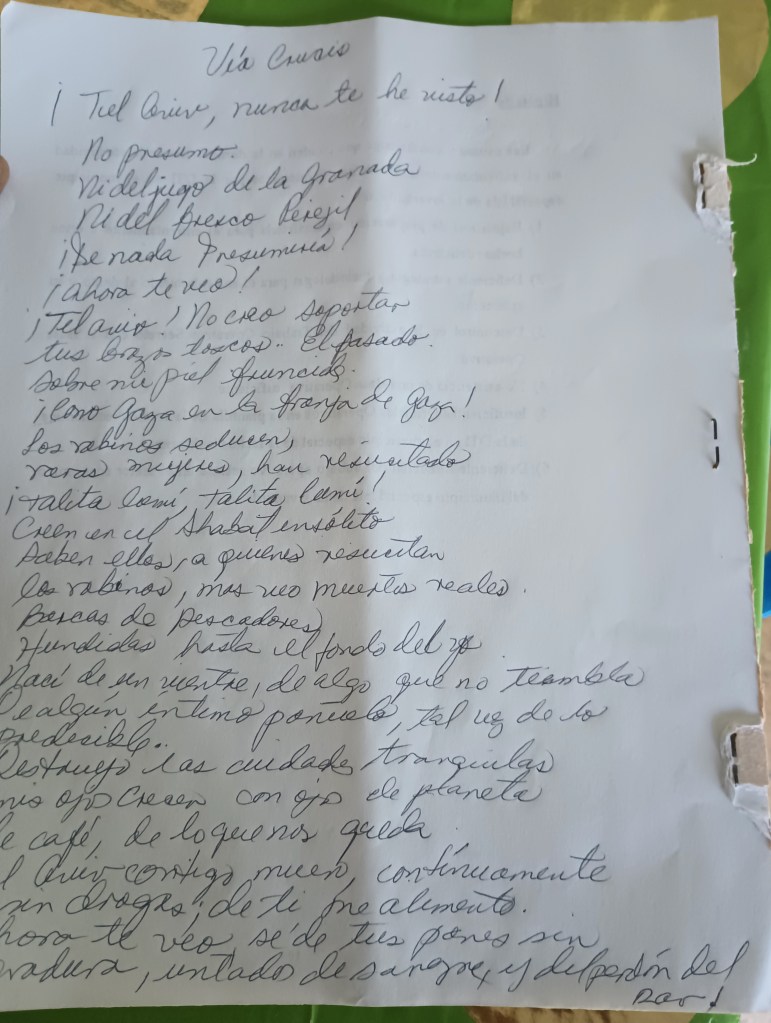 Vía Crucis
¡Tel Aviv, nunca te he visto!
No presumo.
Ni del jugo de la Granada
Ni del fresco Perejil,
¡De nada Presumiría!
¡ahora te veo!
¡Tel aviv! No creo soportar
tus brazos toscos.. El pasado.
sobre mi piel fruncida.
¡Como Gaza en la franja de Gaza!
Los rabinos seducen,
raras mujeres, han resucitado
¡Talita cumí, talita cumí!
Creen en el Shabat insólito
Saben ellos, a quienes resucitan
los rabinos, mas veo muertos reales.
Barcas de Pescadores
Hundidas hasta el fondo del yo
Nací de un vientre, de algo que no tiembla
e algún íntimo pañuelo, tal vez de lo
predecible..
Destruyo las cuidades tranquilas
mis ojos crecen con ojos de planeta
e café, de lo que nos queda.
l Aviv contigo muero, continuamente
sin drogas; de ti me alimento.
hora te veo, sé de tus panes sin
vadura, untados de sangre, y del perdón del